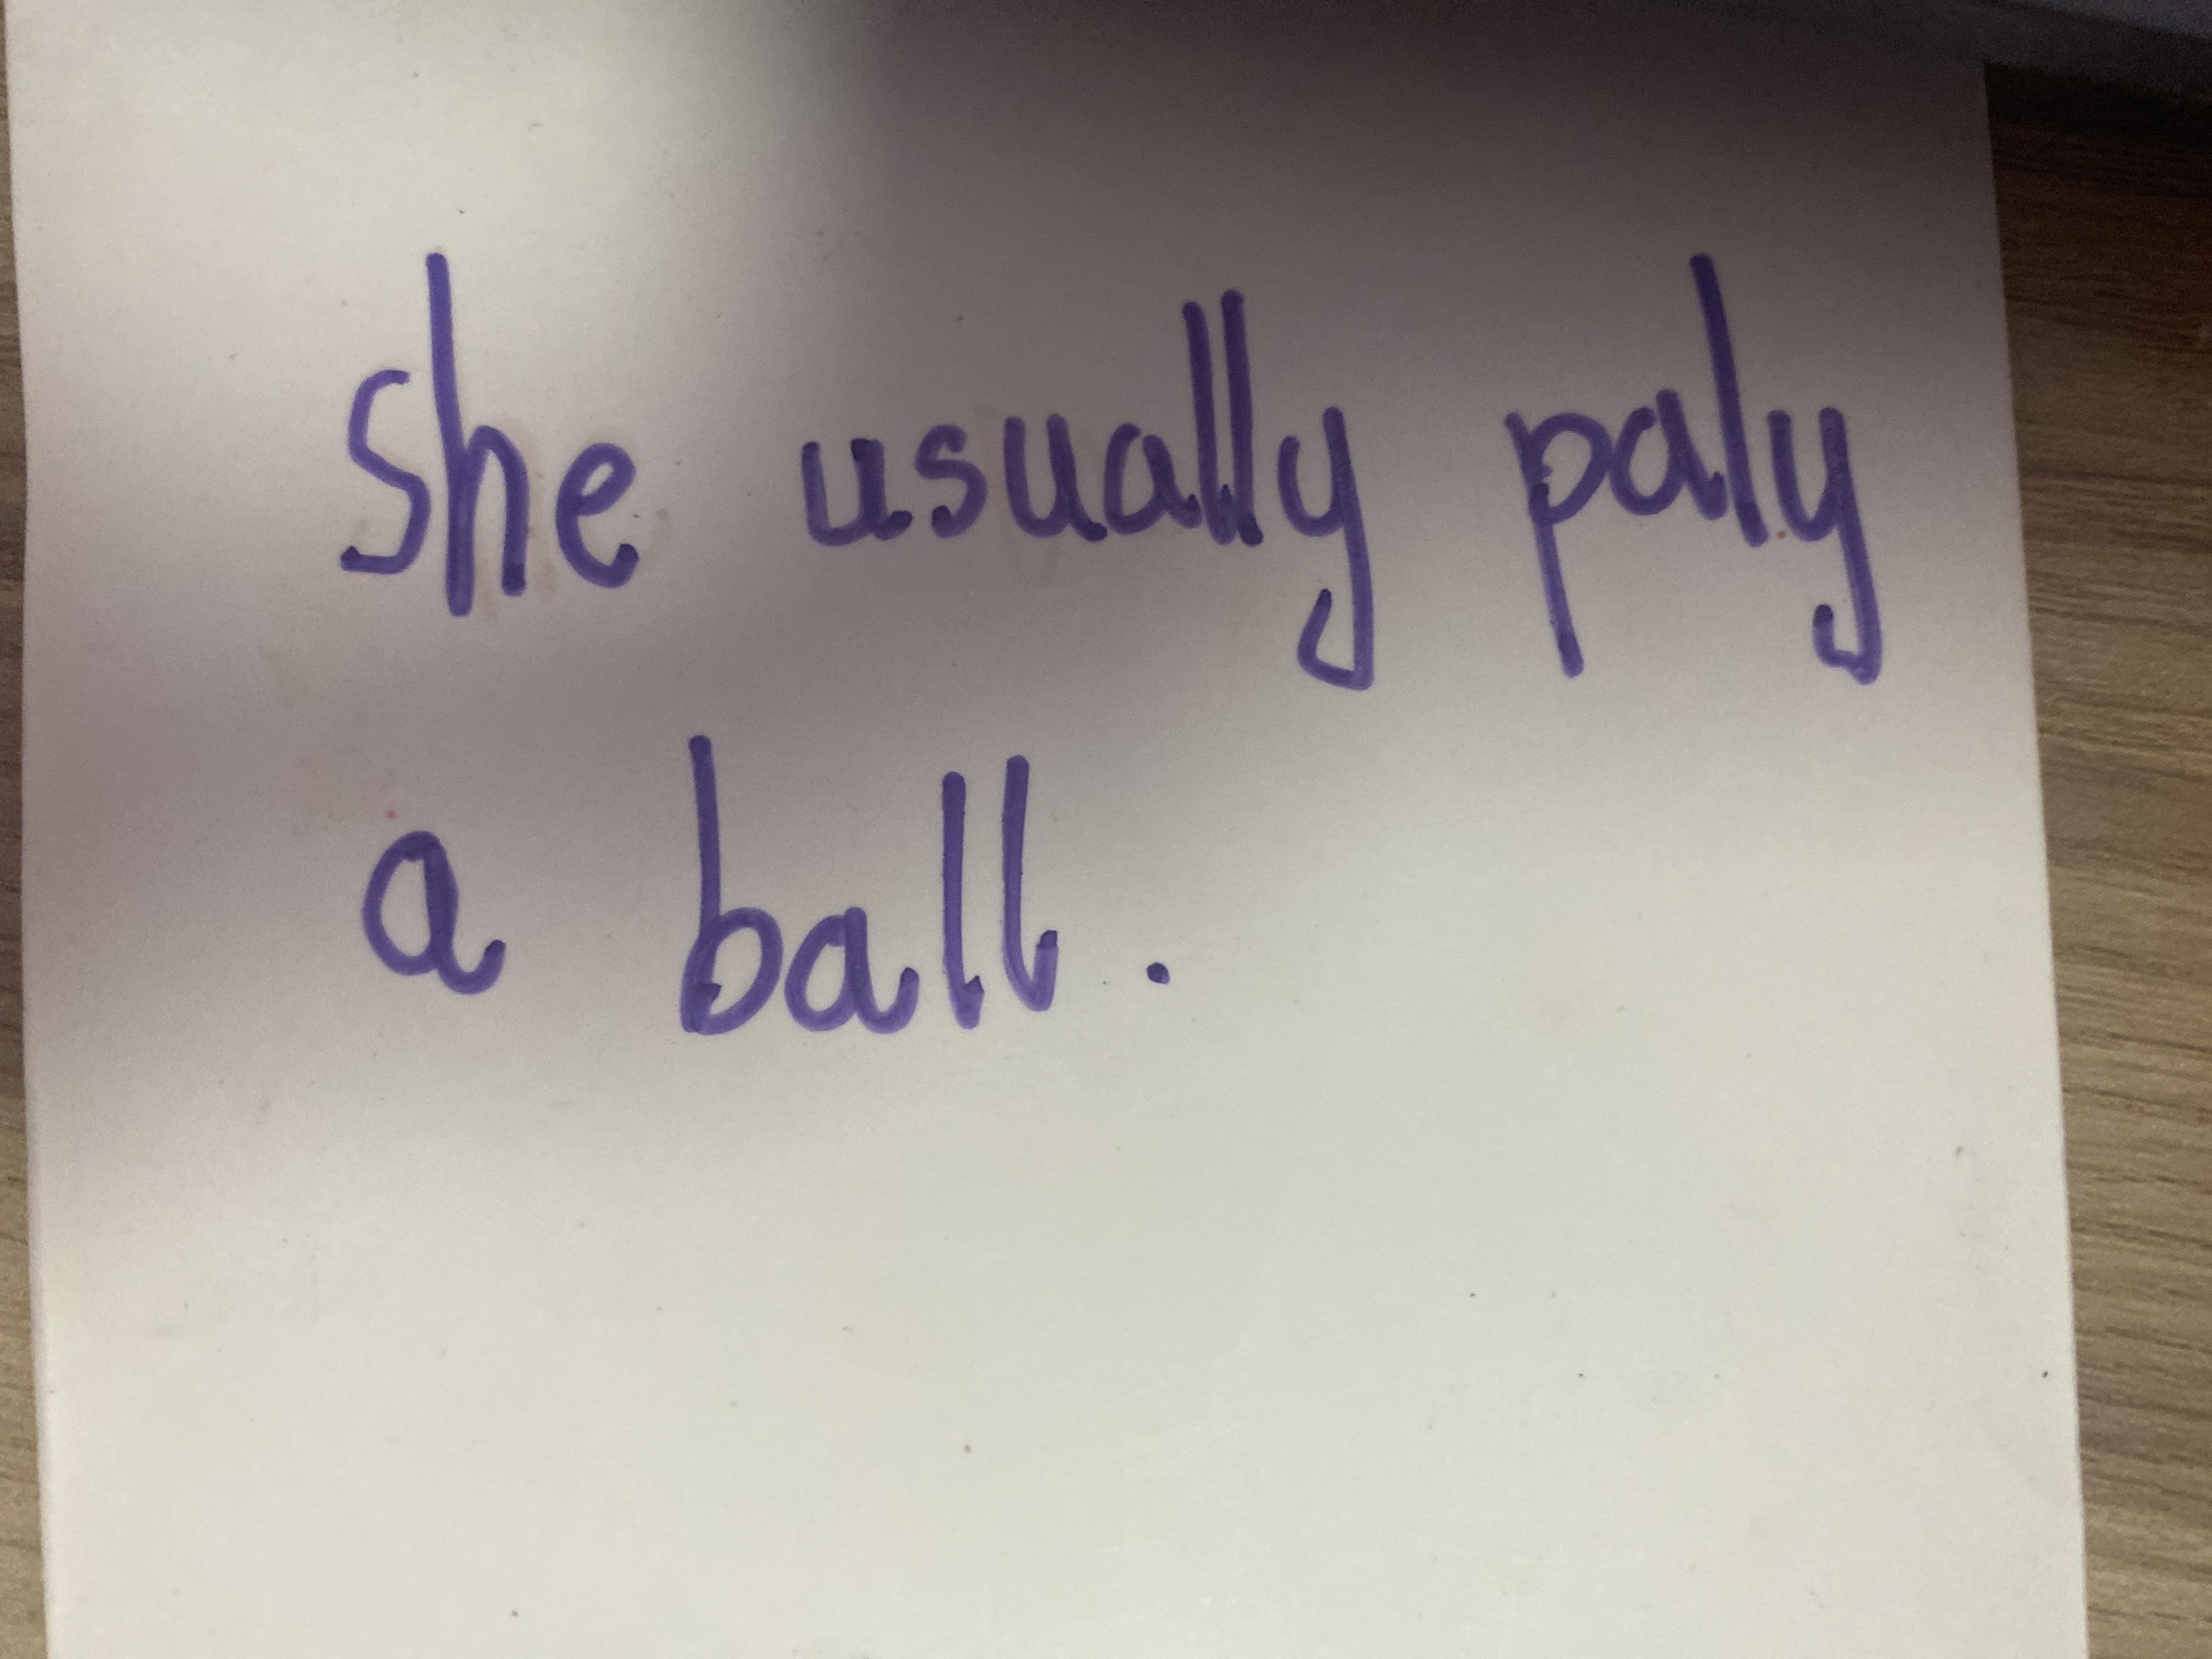 She usually pally
a ball.